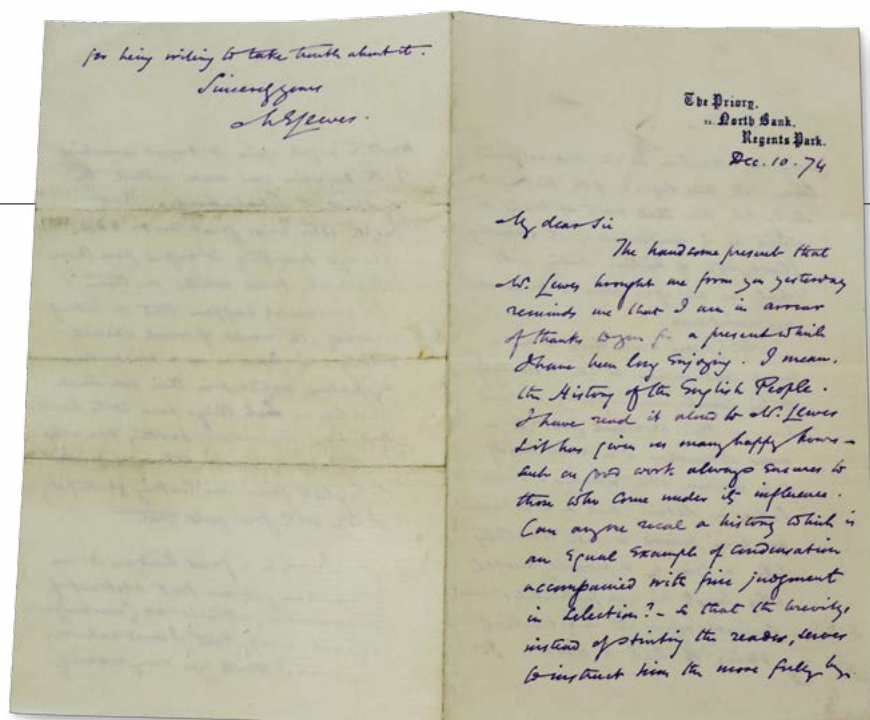 for being willing to take trouble about it.
Sincerely yours
M E Lewes.
The Priory,
21. North Bank,
Regents Park.
Dec. 10. 74
My dear Sir
The handsome present that
Mr. Lewes brought me from you yesterday
reminds me that I am in arrear
of thanks to you for a present which
I have been long enjoying. I mean,
the History of the English People.
I have read it aloud to Mr. Lewes
& it has given us many happy hours –
such as good work always ensures to
those who come under its influence.
Can anyone recal a history which is
an equal example of condensation
accompanied with fine judgment
in selection? – so that the brevity,
instead of stinting the reader, serves
to instruct him the more fully by